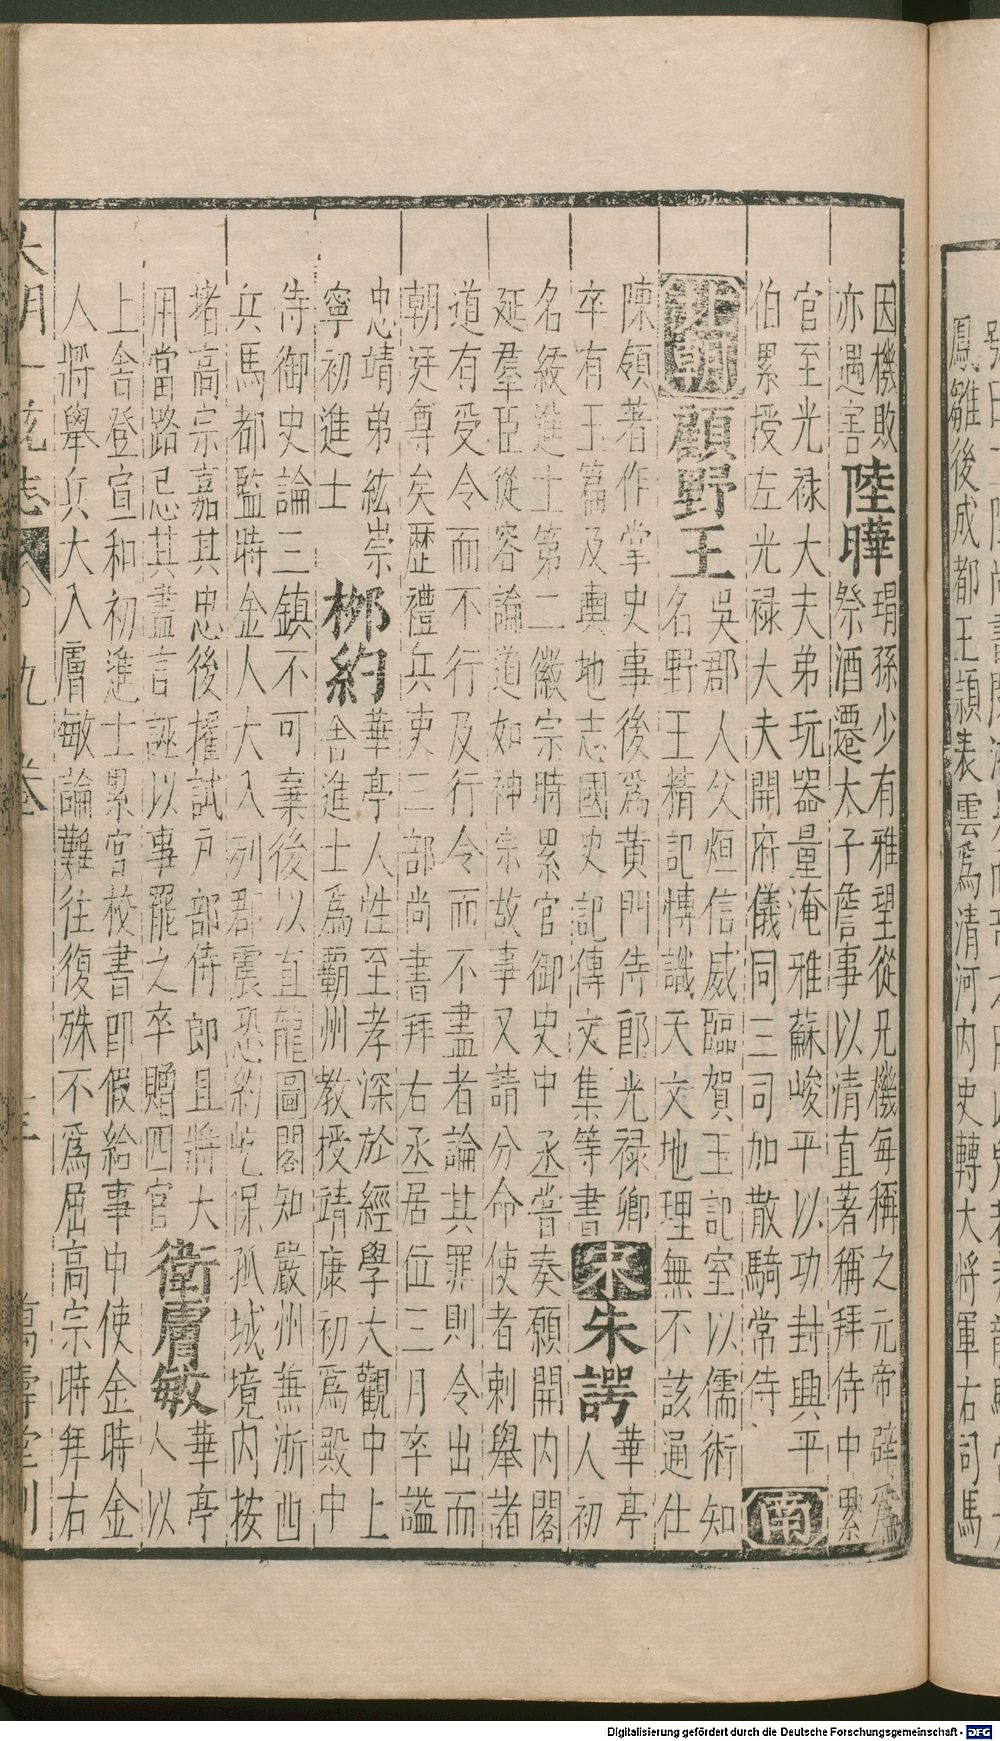 鳳雛後成都王穎表雲爲清河内史轉大将軍右司馬
因機敗
亦遇害
陸曄
瑁孫少有雅望從兄機每稱之元帝辟爲
祭酒遷太子詹事以清直著稱拜侍中累
官至光禄大夫弟玩器量淹雅蘇峻平以功封興平
伯累授左光禄大夫開府儀同三司加散騎常侍
南
北朝
顧野王
吳郡人父烜信威臨賀王記室以儒術知
名野王精記博識天文地理無不該通仕
陳領著作掌史事後爲黄門侍郎光禄卿
卒有玉篇及輿地志國史記傳文集等書
宋
朱諤
華亭
人初
名紱進士第二徽宗時累官御史中丞嘗奏願開内閣
延羣臣從容論道如神宗故事又請分命使者刺舉諸
道有受令而不行及行令而不盡者論其罪則令出而
朝廷尊矣歴禮兵吏三部尚書拜右丞居位三月卒謚
忠靖弟絃崇
寧初進士
柳約
華亭人性至孝深於經學大觀中上
舍進士爲覇州教授靖康初爲殿中
侍御史論三鎮不可棄後以直龍圖閣知嚴州蕪浙西
兵馬都監時金人大入列郡震恐約屹保孤城境内按
堵高宗嘉其忠後擢試户部侍郎且將大
用當路忌其盡言誣以事罷之卒贈四官
衛膚敏
華亭
人以
上舎登宣和初進士累官校書即假給事中使金時金
人將舉兵大入膚敏論難往復殊不爲屈高宗時拜右
大明一統志 九卷 萬壽堂刊
Digitalisierung gefördert durch die Deutsche Forschungsgemeinschaft - DFG